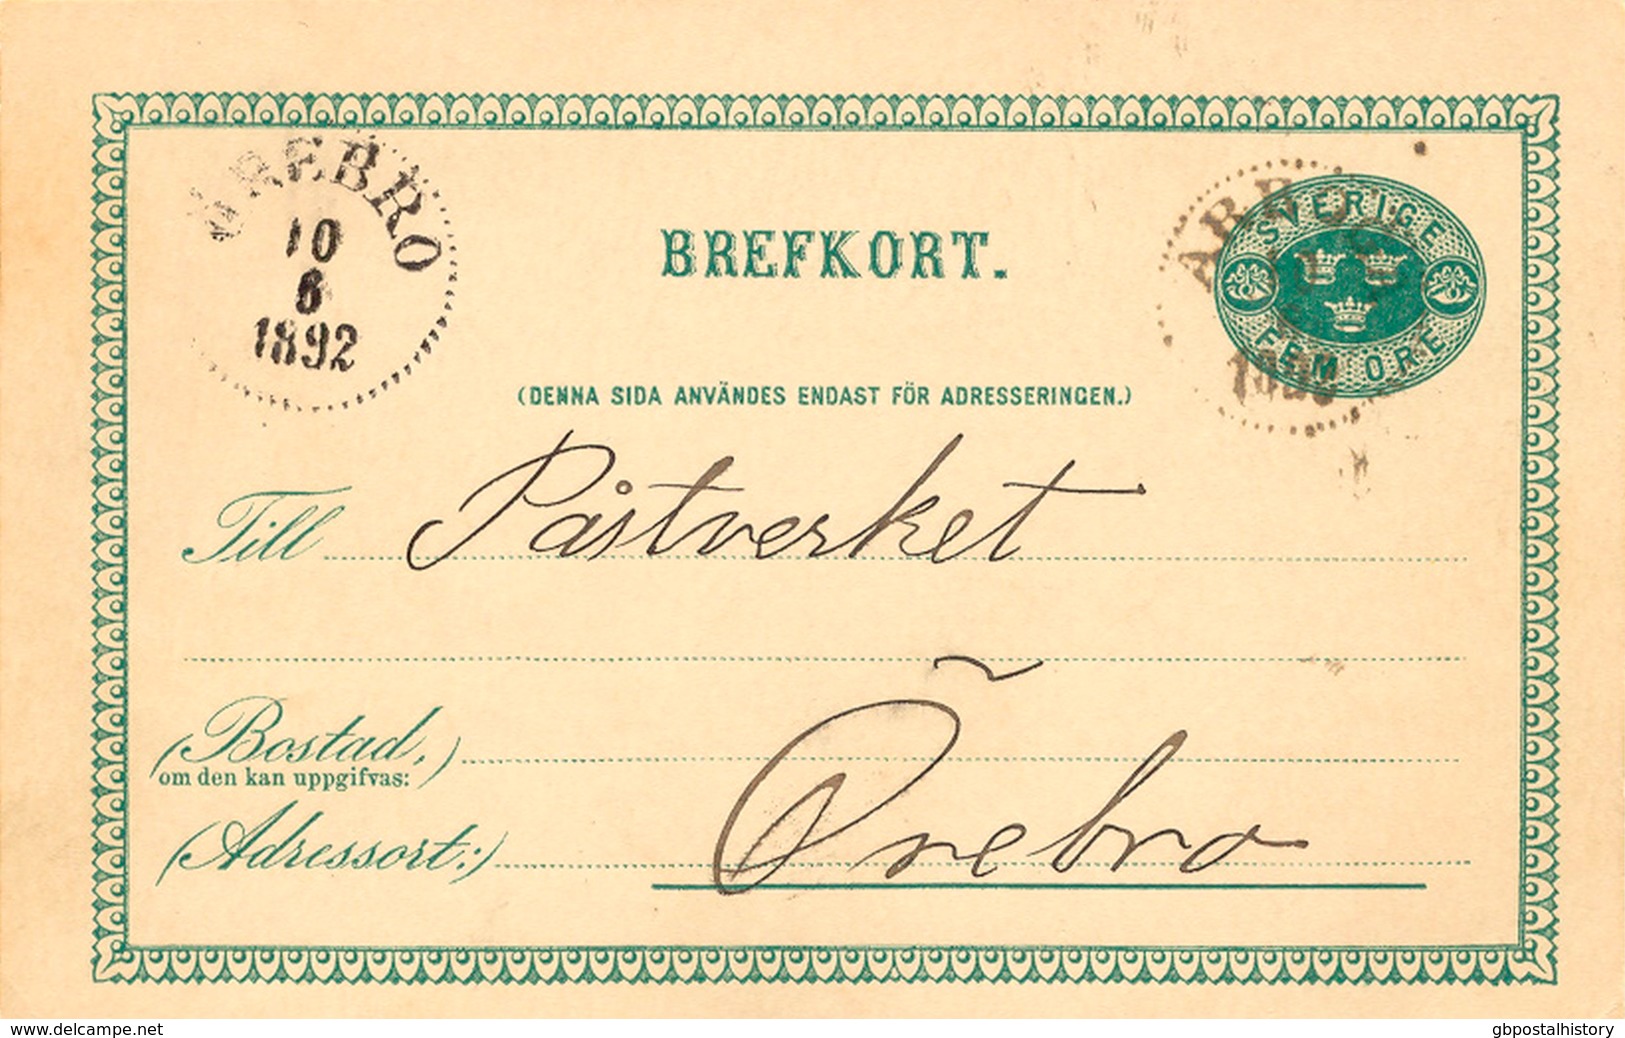 ÖREBRO
10
6
1892
BREFKORT.
SVERIGE
FEM ÖRE
(DENNA SIDA ANVÄNDES ENDAST FÖR ADRESSERINGEN.)
Till Påstverket
(Bostad,)
om den kan uppgifvas:
(Adressort:) Örebro
www.delcampe.net
gbpostalhistory